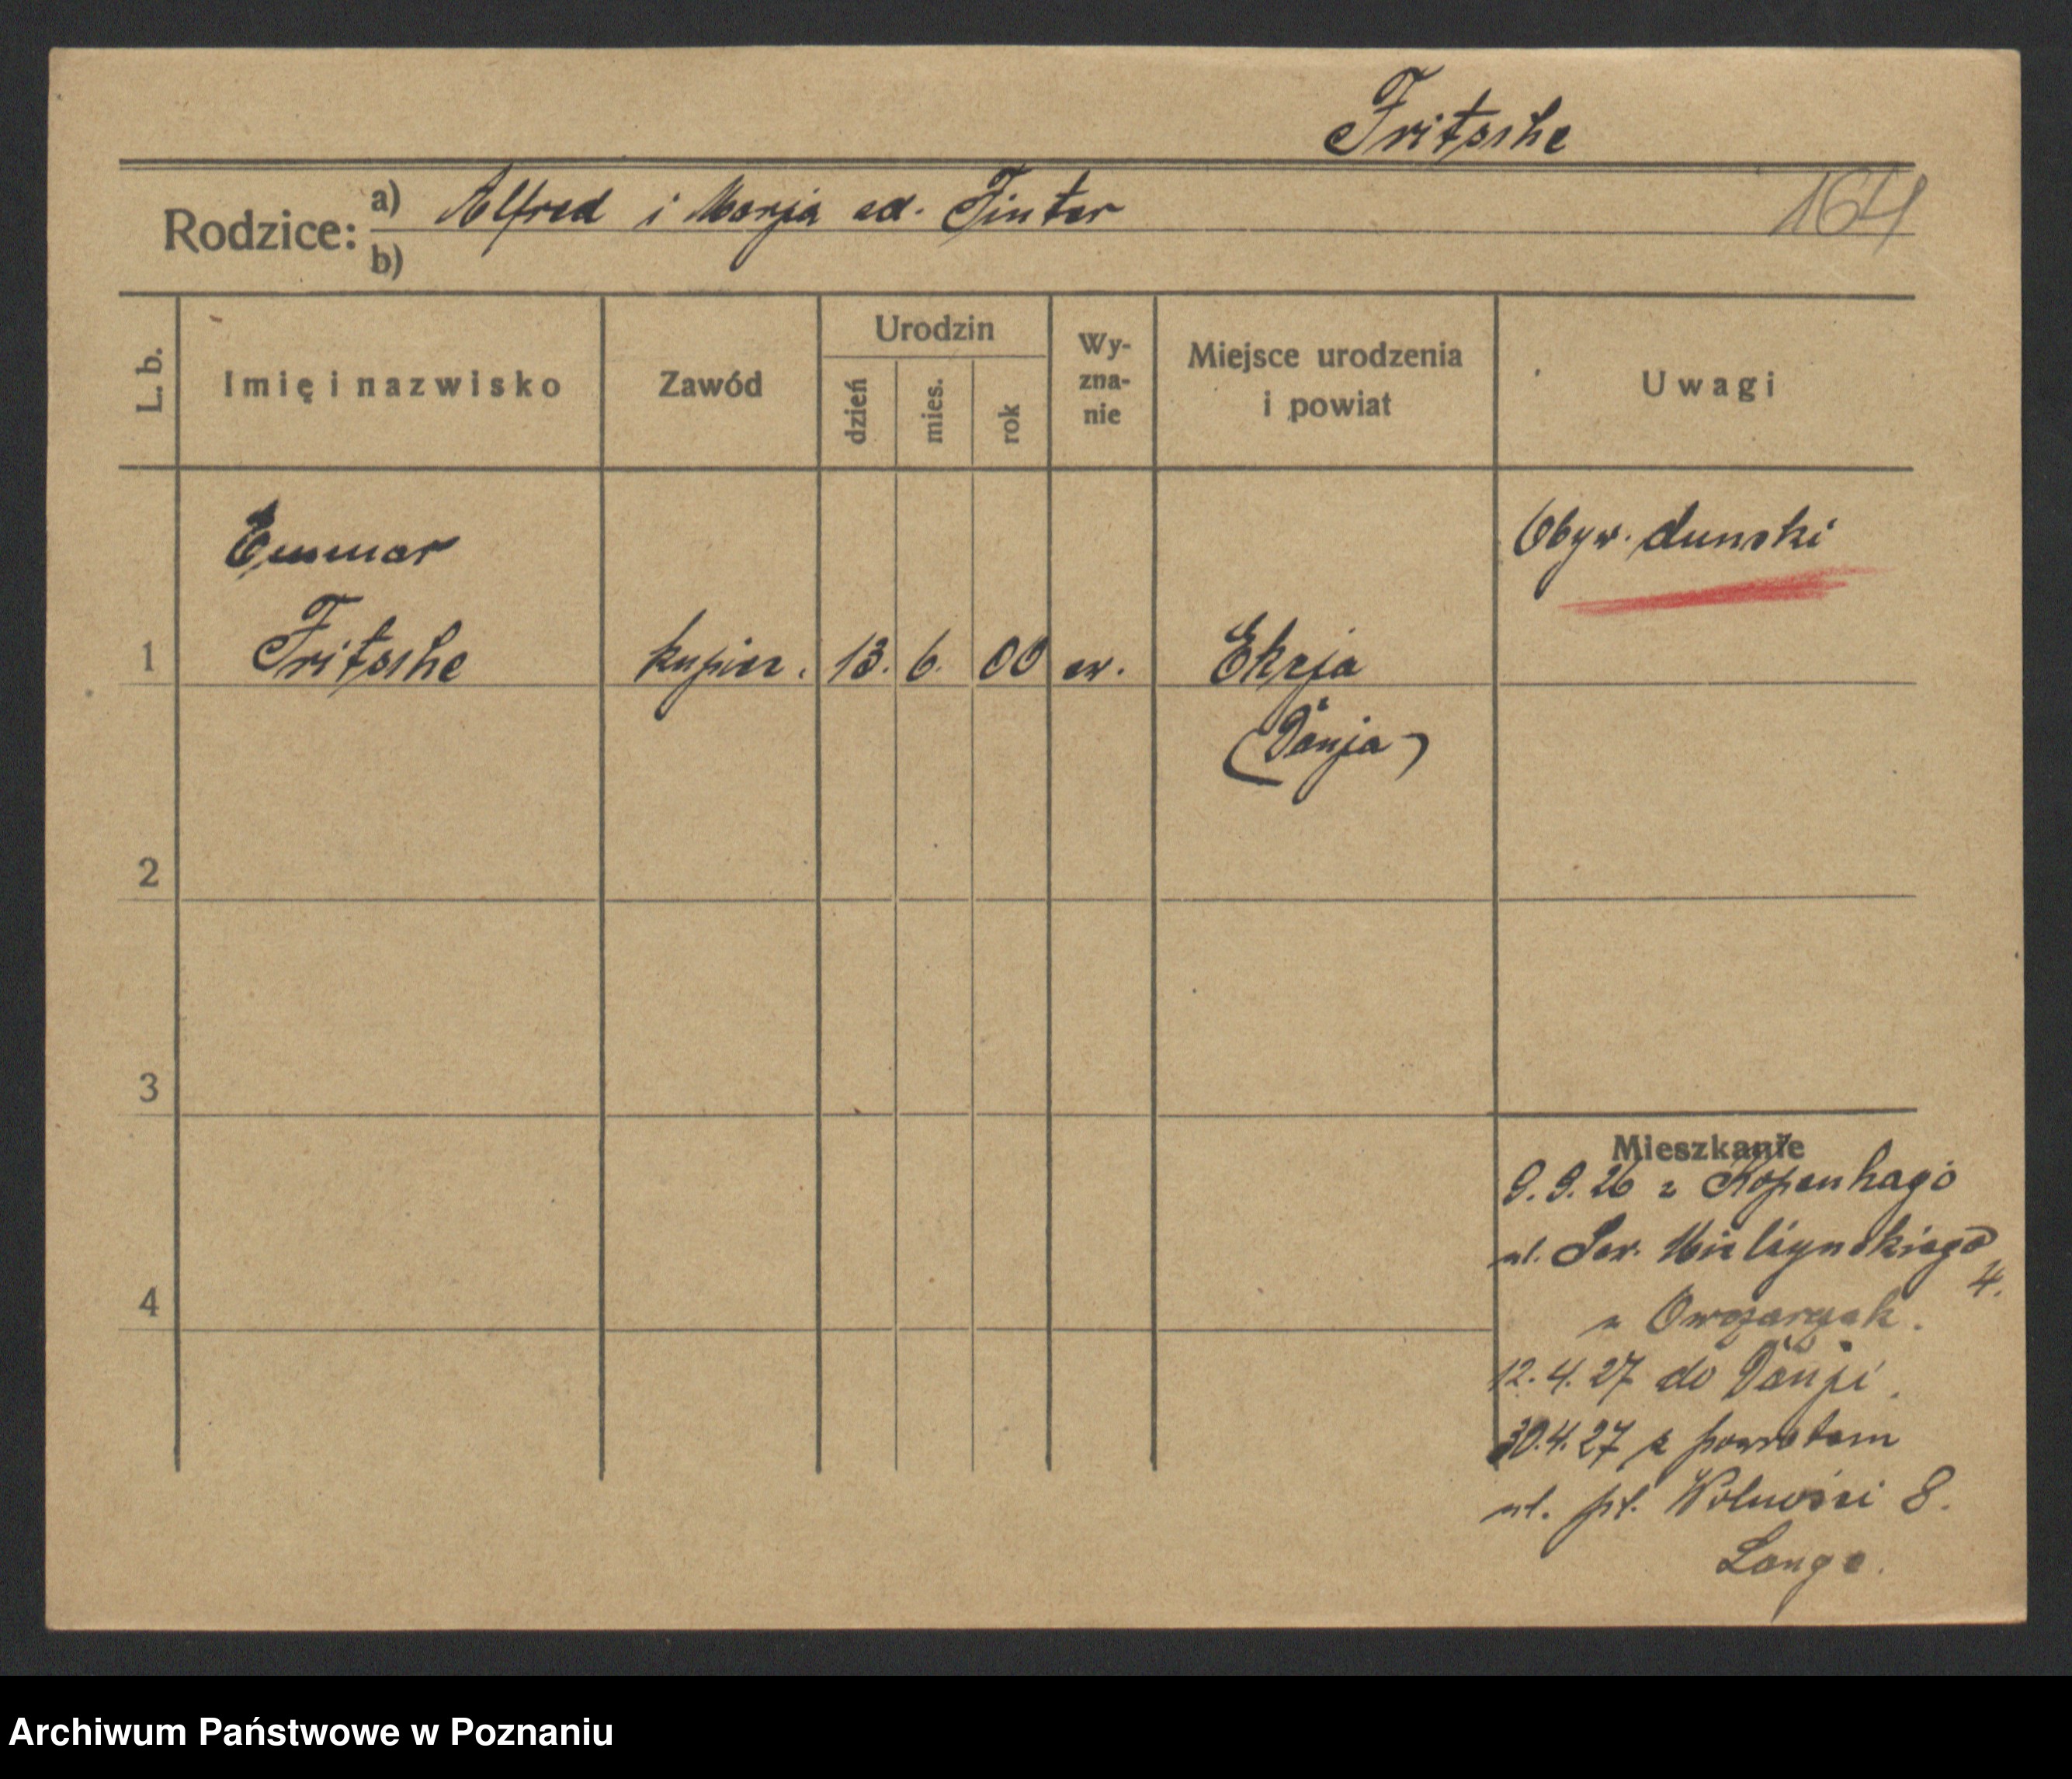 Fritsche
164
Rodzice: a) Alfred i Marja ed. Finter
b)
L. b.
Imię i nazwisko
Zawód
Urodzin
dzień
mies.
rok
Wy-
zna-
nie
Miejsce urodzenia
i powiat
Uwagi
Obyw. dunski
Fritsche
1
kupiec. 13. 6. 00 ew.
(Danja)
2
3
4
Mieszkanie
9.9.26 z Kopenhagi
ul. Sew. Mielżynskiego
4.
u Owczarzak.
12.4.27 do Danji.
30.4.27 z powrotem
ul. pl. Wolności 8.
Lange.
Archiwum Państwowe w Poznaniu